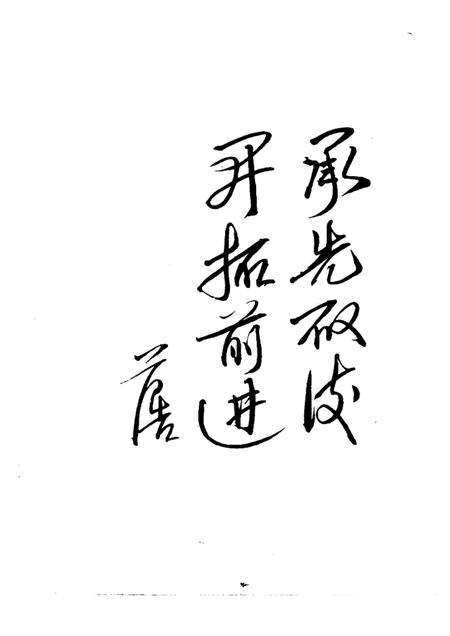 承先启后
开拓前进